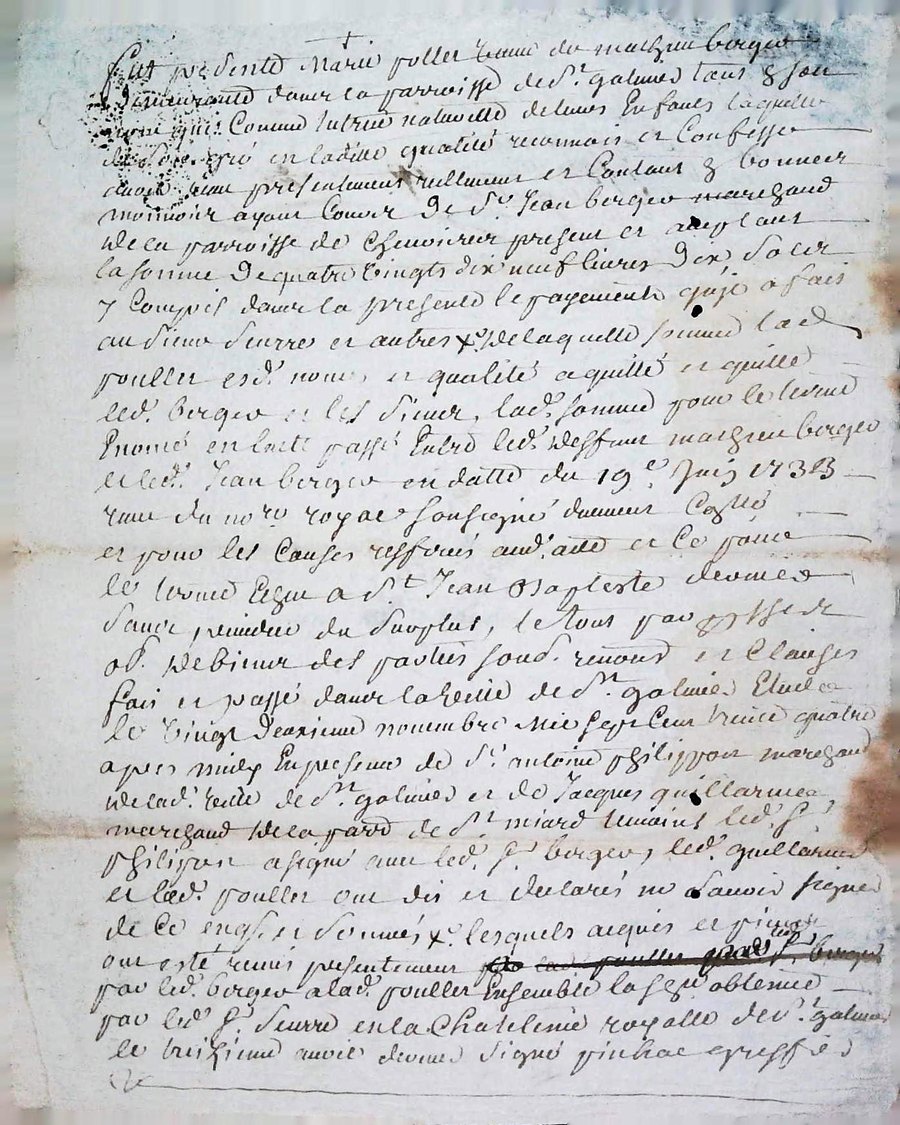 fut presente Marie poller veuve de mathieu berger
demeurante dans la parroisse de St galmier tant a son
nom que Comme tutrice naturelle de leurs Enfants laquelle
de son gré en ladite qualité reconnois et Confesse
avoir eue presentement reellement et Contant & bonne
monnoie ayant Cours De Sr Jean berger marchand
de la parroisse de present et aceptant
la somme De quatre vingts dix neuf livres Dix Sols
y Compris dans la presente le payement qu'il a fais
au Sieur Seurre et autres x de laquelle somme lad
pouller esd. noms et qualité aquitté et quitte
led. berger et les Siens, lad. somme pour le terme
Enoncé en lacte passé Entre led. deffunt mathieu berger
et led. Jean berger en datte du 19e Juin 1733
reçu du nore royal soussigné duement Collé
et pour les Causes resferés aud. acte et Ce pour
le terme Echu a St Jean Baptiste dernier
sans prejudice du surplus, le tout par
ob. de biens des parties soud. renond et Clauses
fais et passé dans la ville de St galmier Etude
le vingt deuxieme novembre Mil sept Cent trente quatre
apres midy En presence de Sr antoine philippon marchand
de lad. ville de St galmier et de Jacques guillarme
marchand de la parr de St miard temoins led. Sr
philipon a signé avec led. Sr berger, led. guillarme
et lad. pouller ont dis et declarés ne Savoir signer
de Ce enqs. et sommés x. lesquels acquis et pieces
ont esté remis presentement berger
par led. berger a lad. pouller Ensemble la obtenue
par led. Sr Seurre en la Chatelenie royalle de St galmier
le treizieme avril dernier signé pinhac greffier